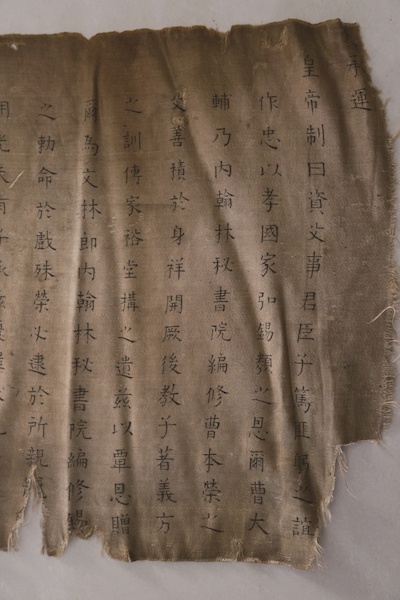 承運
皇帝制曰資父事君臣子篤匪躬之誼
作忠以孝國家弘錫類之恩爾曹大
輔乃内翰林秘書院編修曹本榮之
父善積於身祥開厥後教子著義方
之訓傳家裕堂構之遺茲以覃恩贈
爾為文林郎内翰林秘書院編修錫
之勅命於戲殊榮必逮於所親
用光夫有子承茲優渥